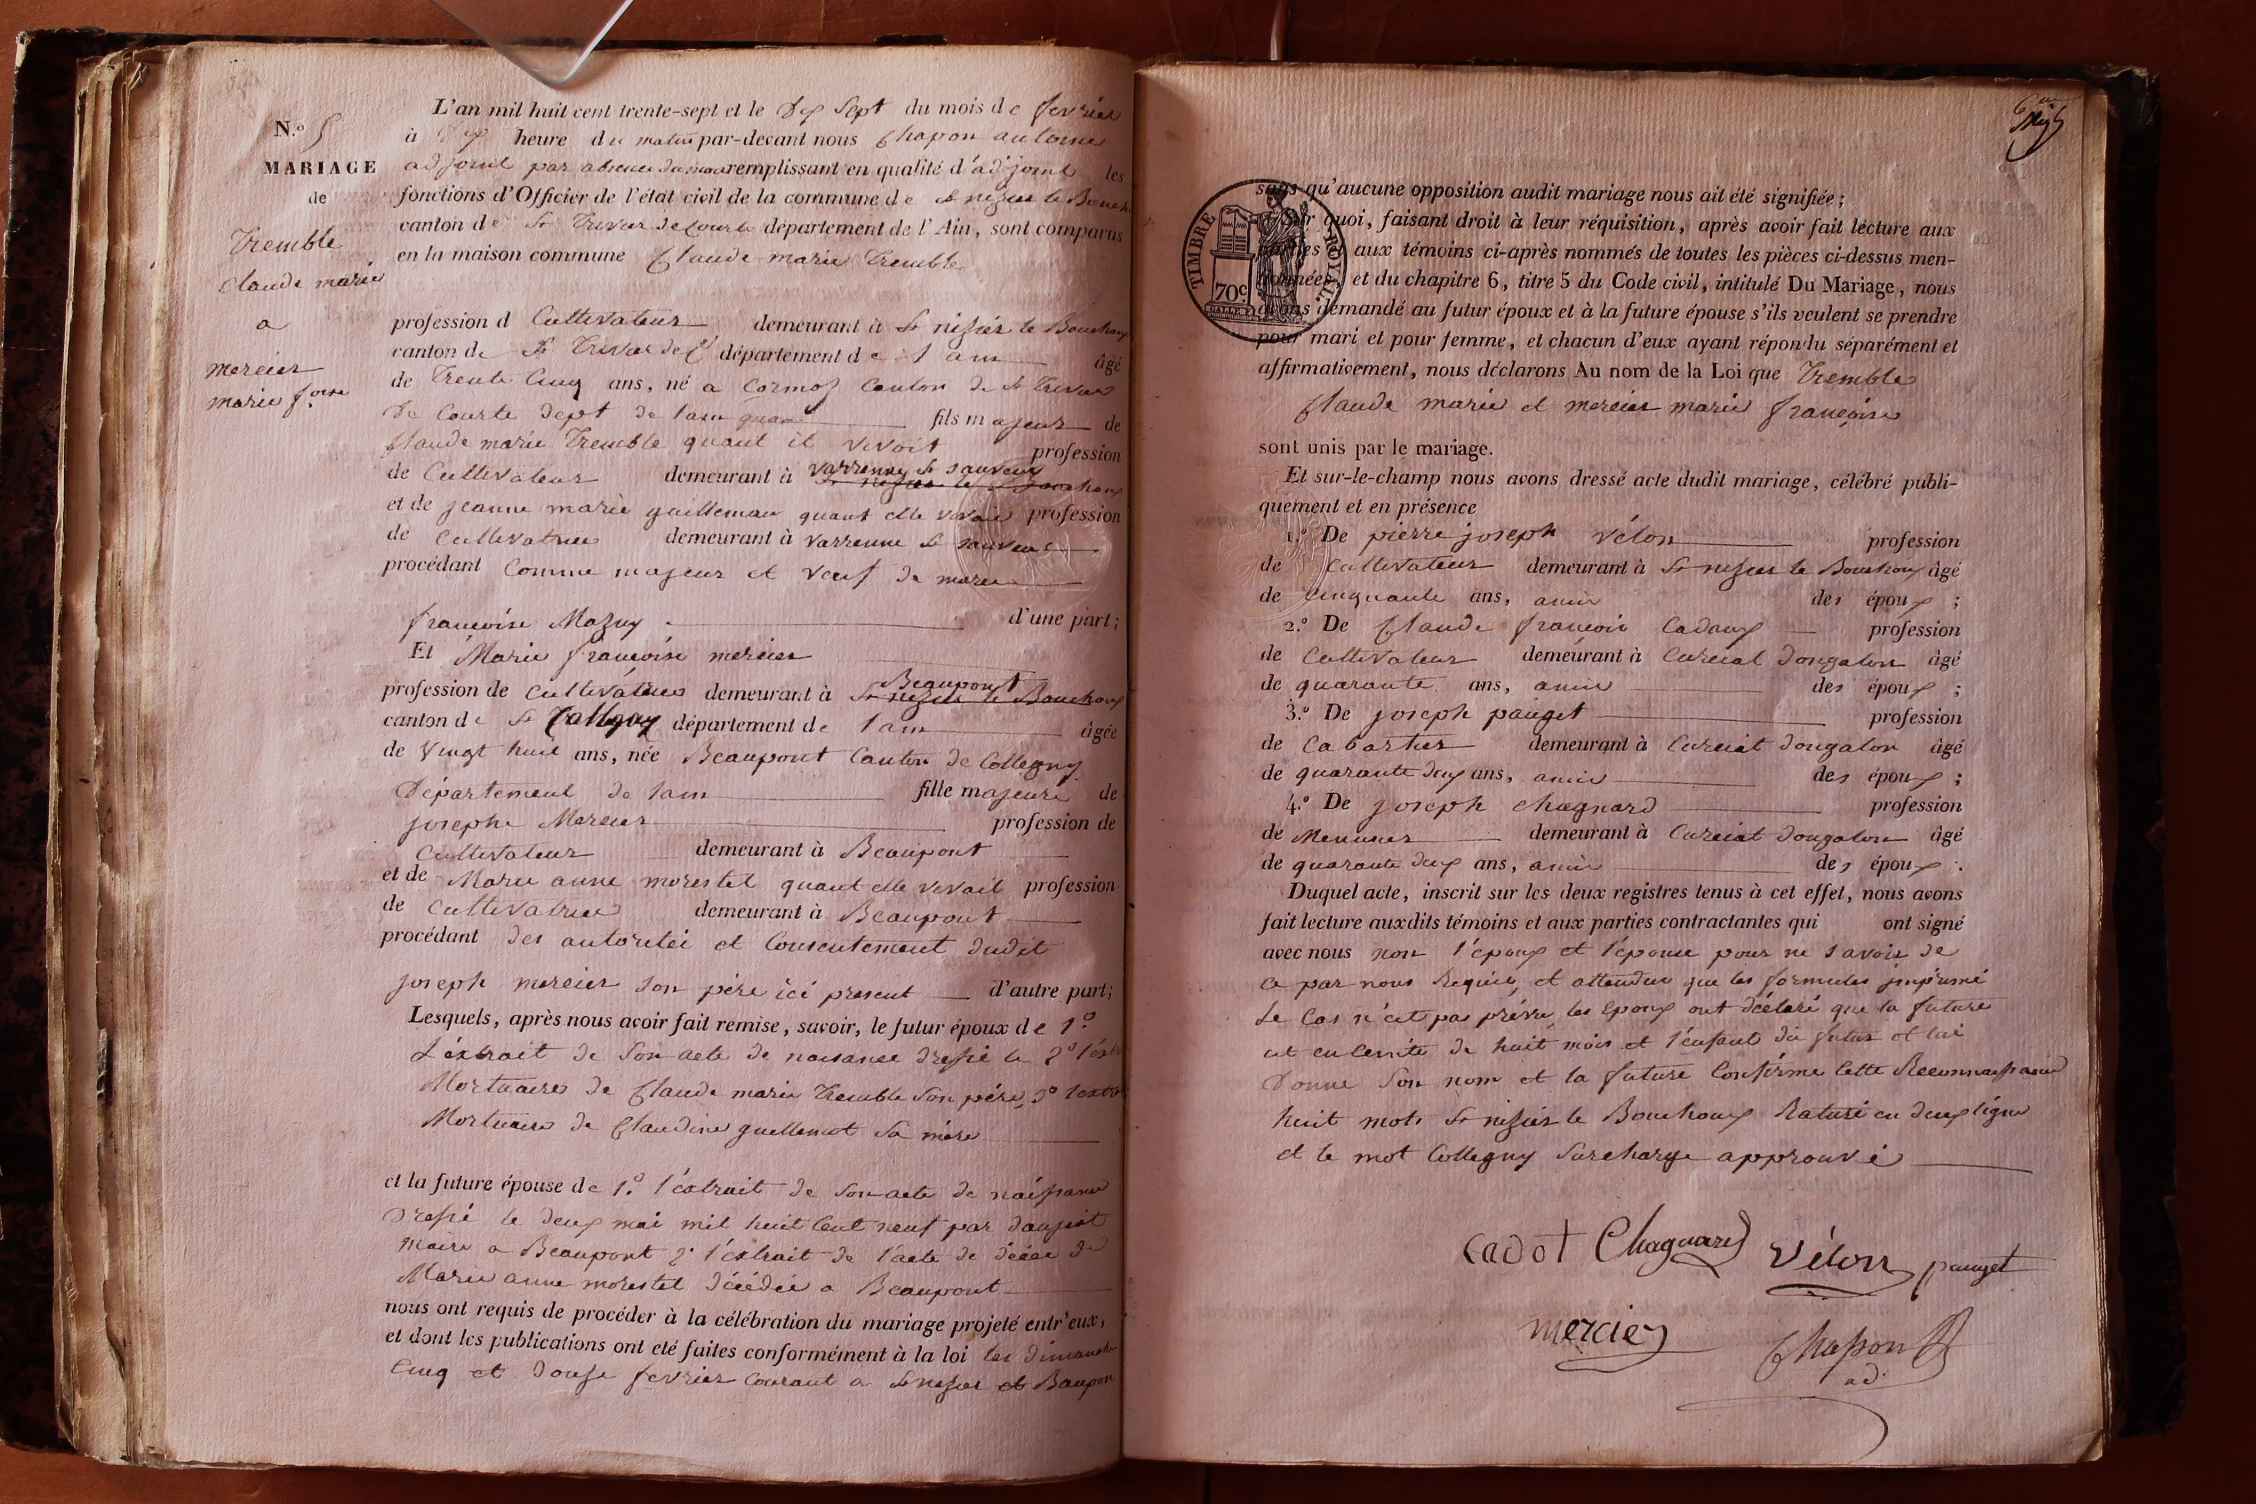 N.o 5
MARIAGE
de
Tremble
Claude marie
a
mercier
marie f.oise
L'an mil huit cent trente-sept et le dix sept du mois de fevrier
à dix heure du matin par-devant nous Chapon antoine
adjoint par absence du maire remplissant en qualité d'adjoint les
fonctions d'Officier de l'état civil de la commune de st nizier le Bouch
canton de St Trivier de Courte département de l'Ain, sont comparus
en la maison commune Claude marie Tremble
profession d Cultivateur demeurant à St nizier le Bouchoux
canton de St Trivier de C département de l'ain âgé
de Trente Cinq ans, né a Cormoz Canton de St Trivier
De Courte dept de l'ain fils majeur de
Claude marie Tremble quant il vivoit profession
de Cultivateur demeurant à varrenne St sauveur
St nizier le Bouchoux
et de jeanne marie guillemau quant elle vivai profession
de Cultivatrice demeurant à varrenne St sauveur
procédant Comme majeur et veuf de marie
françoise Mazuy d'une part;
Et Marie françoise mercier
profession de Cultivatrice demeurant à Beaupont
St nizier le Bouchoux
canton de Collegny département de l'ain âgée
de vingt huit ans, née Beaupont Canton de Collegny
Département de l'ain fille majeure de
josephe Mercier profession de
Cultivateur demeurant à Beaupont
et de Marie anne morestel quant elle vivait profession
de Cultivatrice demeurant à Beaupont
procédant des autorité et Consentement dudit
joseph mercier son père ici present d'autre part;
Lesquels, après nous avoir fait remise, savoir, le futur époux de 1.o
L'éxtrait de son acte de naisance dressé le 2o l'éxtr
Mortuaires de Claude marie Tremble son père, 3o l'extr
Mortuaire de Claudine guillemot sa mère
et la future épouse de 1.o l'éxtrait de son acte de naissance
Dressé le deux mai mil huit Cent neuf par
Maire a Beaupont 2o l'éxtrait de l'acte de décée de
Marie anne morestel décédée a Beaupont
nous ont requis de procéder à la célébration du mariage projeté entr'eux,
et dont les publications ont été faites conformément à la loi les dimanche
Cinq et Douse fevrier Courant a St nizier et Baupon
TIMBRE ROYAL
70c.
sans qu'aucune opposition audit mariage nous ait été signifiée;
Sur quoi, faisant droit à leur réquisition, après avoir fait lecture aux
parties et aux témoins ci-après nommés de toutes les pièces ci-dessus men-
tionnées, et du chapitre 6, titre 5 du Code civil, intitulé Du Mariage, nous
avons demandé au futur époux et à la future épouse s'ils veulent se prendre
pour mari et pour femme, et chacun d'eux ayant répondu séparément et
affirmativement, nous déclarons Au nom de la Loi que Tremble
Claude marie et mercier marie françoise
sont unis par le mariage.
Et sur-le-champ nous avons dressé acte dudit mariage, célébré publi-
quement et en présence
1.o De pierre joseph vélon profession
de Cultivateur demeurant à St nizier le Bouchoux âgé
de Cinquante ans, amis des époux ;
2.o De Claude francois Cadoux profession
de Cultivateur demeurant à Curciat dongalon âgé
de quarante ans, amis des époux ;
3.o De joseph pauget profession
de Cabartier demeurant à Curciat dongalon âgé
de quarante deux ans, amis des époux ;
4.o De joseph chagnard profession
de Menusier demeurant à Curciat dongalon âgé
de quarante deux ans, amis des époux .
Duquel acte, inscrit sur les deux registres tenus à cet effet, nous avons
fait lecture auxdits témoins et aux parties contractantes qui ont signé
avec nous non l'époux et l'épouse pour ne savoir de
ce par nous Requis, et attendu que les formules jmprimé
le Cas n'ést pas prévu, les Epoux ont déclaré que la future
est enCeinte de huit mois et l'enfant du futur et lui
Donne Son nom et la future Confirme Cette Reconnaissance
huit mots St nizier le Bouchoux Raturé en deux ligne
et le mot Collegny Surcharge approuvé
Cadot Chagnard vélon pauget
mercier Chapon
ad.